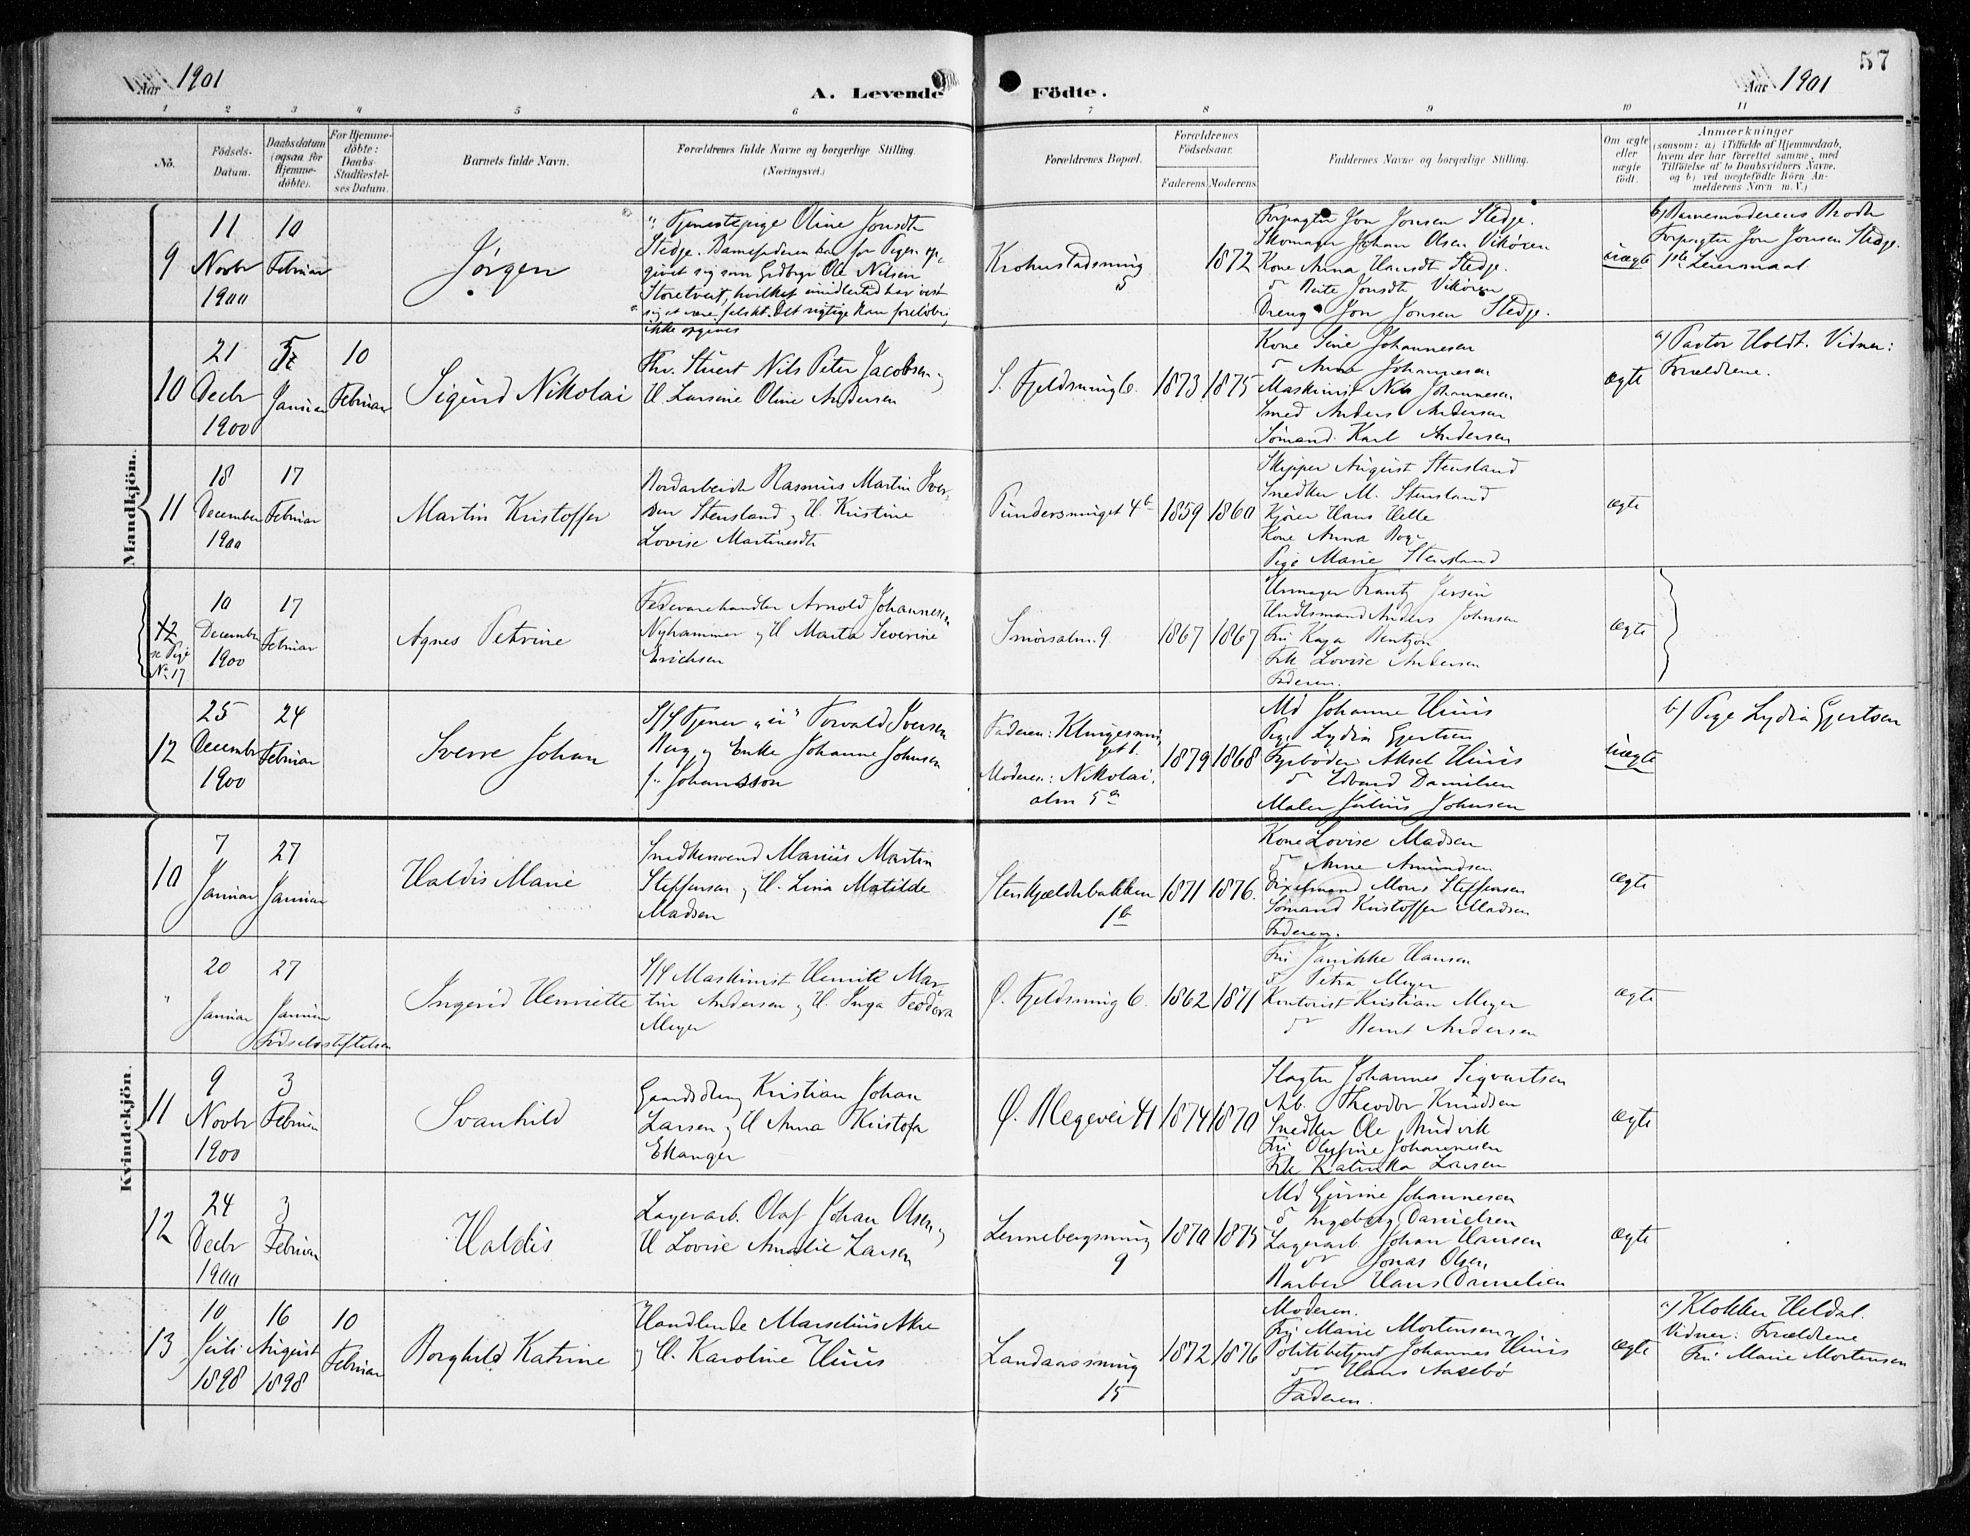 57
Aar 1901
A. Levende Födte.
Aar 1901
1 2 3 4 5 6 7 8 9 10 11
Nö.
Födsels-
Datum.
Daabsdatum
(ogsaa for
Hjemme-
döbte).
For Hjemme-
döbte:
Daabs-
Stadfæstel-
ses Datum.
Barnets fulde Navn.
Forældrenes fulde Navne og borgerlige Stilling.
(Næringsvei.)
Forældrenes Bopæl.
Forældrenes
Födselsaar.
Faderens. Moderens.
Faddernes Navne og borgerlige Stilling.
Om ægte
eller
uægte
födt.
Anmærkninger
(saasom: a) i Tilfælde af Hjemmedaab,
hvem der har forrettet samme, med
Tilföielse af to Daabsvidners Navne,
og b) ved uægtefödte Börn An-
melderens Navn m. V.)
Mandkjön.
9
11
Novbr
1900
10
Februar
Jørgen
Tjenestepige Oline Jonsdt
Stedje. Barnefaderen har for Pigen op-
givet sig som Grdbrgr Ole Nilsen
Storetveit, hvilket imidlertid har vist
sig at være falskt. Det rigtige kan foreløbig
ikke opgives
Krohnstadsmug
5
1872
Forpagter Jon Jonsen Stedje.
Skomager Johan Olsen Vikören
Kone Anna Hansdt Stedje.
d Brite Jonsdt Vikören
Dreng Jon Jonsen Stedje.
uægte
b) Barnemoderens Broder
Forpagter Jon Jonsen Stedje.
1ste Leiermaal.
10
21
Decbr
1900
Januar
10
Februar
Sigurd Nikolai
Fhv. Stuert Nils Peter Jacobsen og
H. Larsine Oline Andersen
S. Fjeldsmug 6.
1873
1875
Kone Sine Johannesen
d Anna Johannesen
Maskinist Nils Johannesen
Smed Anders Andersen
Sömand Karl Andersen
ægte
a) Pastor Holdt. Vidner:
Forældrene.
11
18
December
1900
17
Februar
Martin Kristoffer
Jordarbeider Rasmus Martin Iver-
sen Stensland og H. Kristine
Lovise Martinesdtr
Pündersmuget 4b
1859
1860
Skipper August Stensland
Snedker M. Stensland
Kjører Hans Helle
Kone Anna Roge
Pige Marie Stensland
ægte
12
se Pige
No. 17
10
December
1900
17
Februar
Agnes Petrine
Fedevarehandler Arnold Johannesen
Nyhammer og H Marta Severine
Erichsen
Smörsalm. 9
1867
1867
Urmager Frantz Jersin
Handlsmand Anders Johnsen
Fru Kaja Berntzen
Frk Lovise Andersen
Faderen.
ægte
12
25
Decembr
1900
24
Februar
Sverre Johan
S/S Tjener "ü" Torvald Iversen
Berg og Enke Johanne Johnsen
f. Johansson
Faderen: Klingesmu-
get 1.
Moderen: Nikolai.
alm 5a
1879
1868
Md Johanne Huus
Pige Lydia Gjertsen
Fyrbøder Aksel Huus
d Edvard Danielsen
Maler Julius Johnsen
uægte
b) Pige Lydia Gjertsen
Kvindekjön.
10
7
Januar
27
Januar
Haldis Marie
Snedkersvend Marius Martin
Steffensen og H. Lina Matilde
Madsen
Stenkjælderbakken
1b
1871
1876.
Kone Lovise Madsen
d Anne Amundsen
Fixelmand Mons Steffensen
Sömand Kristoffer Madsen
Faderen.
ægte
"
20
Januar
27
Januar
Födselsstiftelsen
Ingerid Henriette
S/S Maskinist Henrik Mar-
tin Andersen og H. Inga Teodora
Meyer
Ø. Fjeldsmug 6.
1862
1871
Fru Janikke Hansen
d Petra Meyer
Kontorist Kristian Meyer
d Bernt Andersen
ægte
11
9
Novbr
1900
3
Februar
Svanhild
Gaardsdreng Kristian Johan
Larsen og H Anna Kristofa
Ekanger
Ø. Blegevei 41
1874
1870
Slagter Johannes Sigvartsen
Arb. Theodor Knudsen
Snedker Ole Rudvik
Fru Olufine Johannesen
Frk Katinka Larsen
ægte
12
24
Decbr
1900
3
Februar
Haldis
Lagerarb. Olaf Johan Olsen og
H Lovise Amalie Larsen
Lennebergsmug
9
1870
1875
Md Gurine Johannesen
d Ingeborg Danielsen
Lagerarb Johan Hansen
d Jonas Olsen
Barber Hans Danielsen
ægte
13
10
Juli
1898
16
August
1898
10
Februar
Borghild Katrine
Handlende Marselius Akre
og H. Karoline Huus
Landaassmug
15
1872
1876
Moderen.
Fru Marie Mortensen,
Politibetjent Johannes Huus
d Hans Aasebö
Faderen.
ægte
a) Klokker Heldal.
Vidner: Forældrene
Fru Marie Mortensen